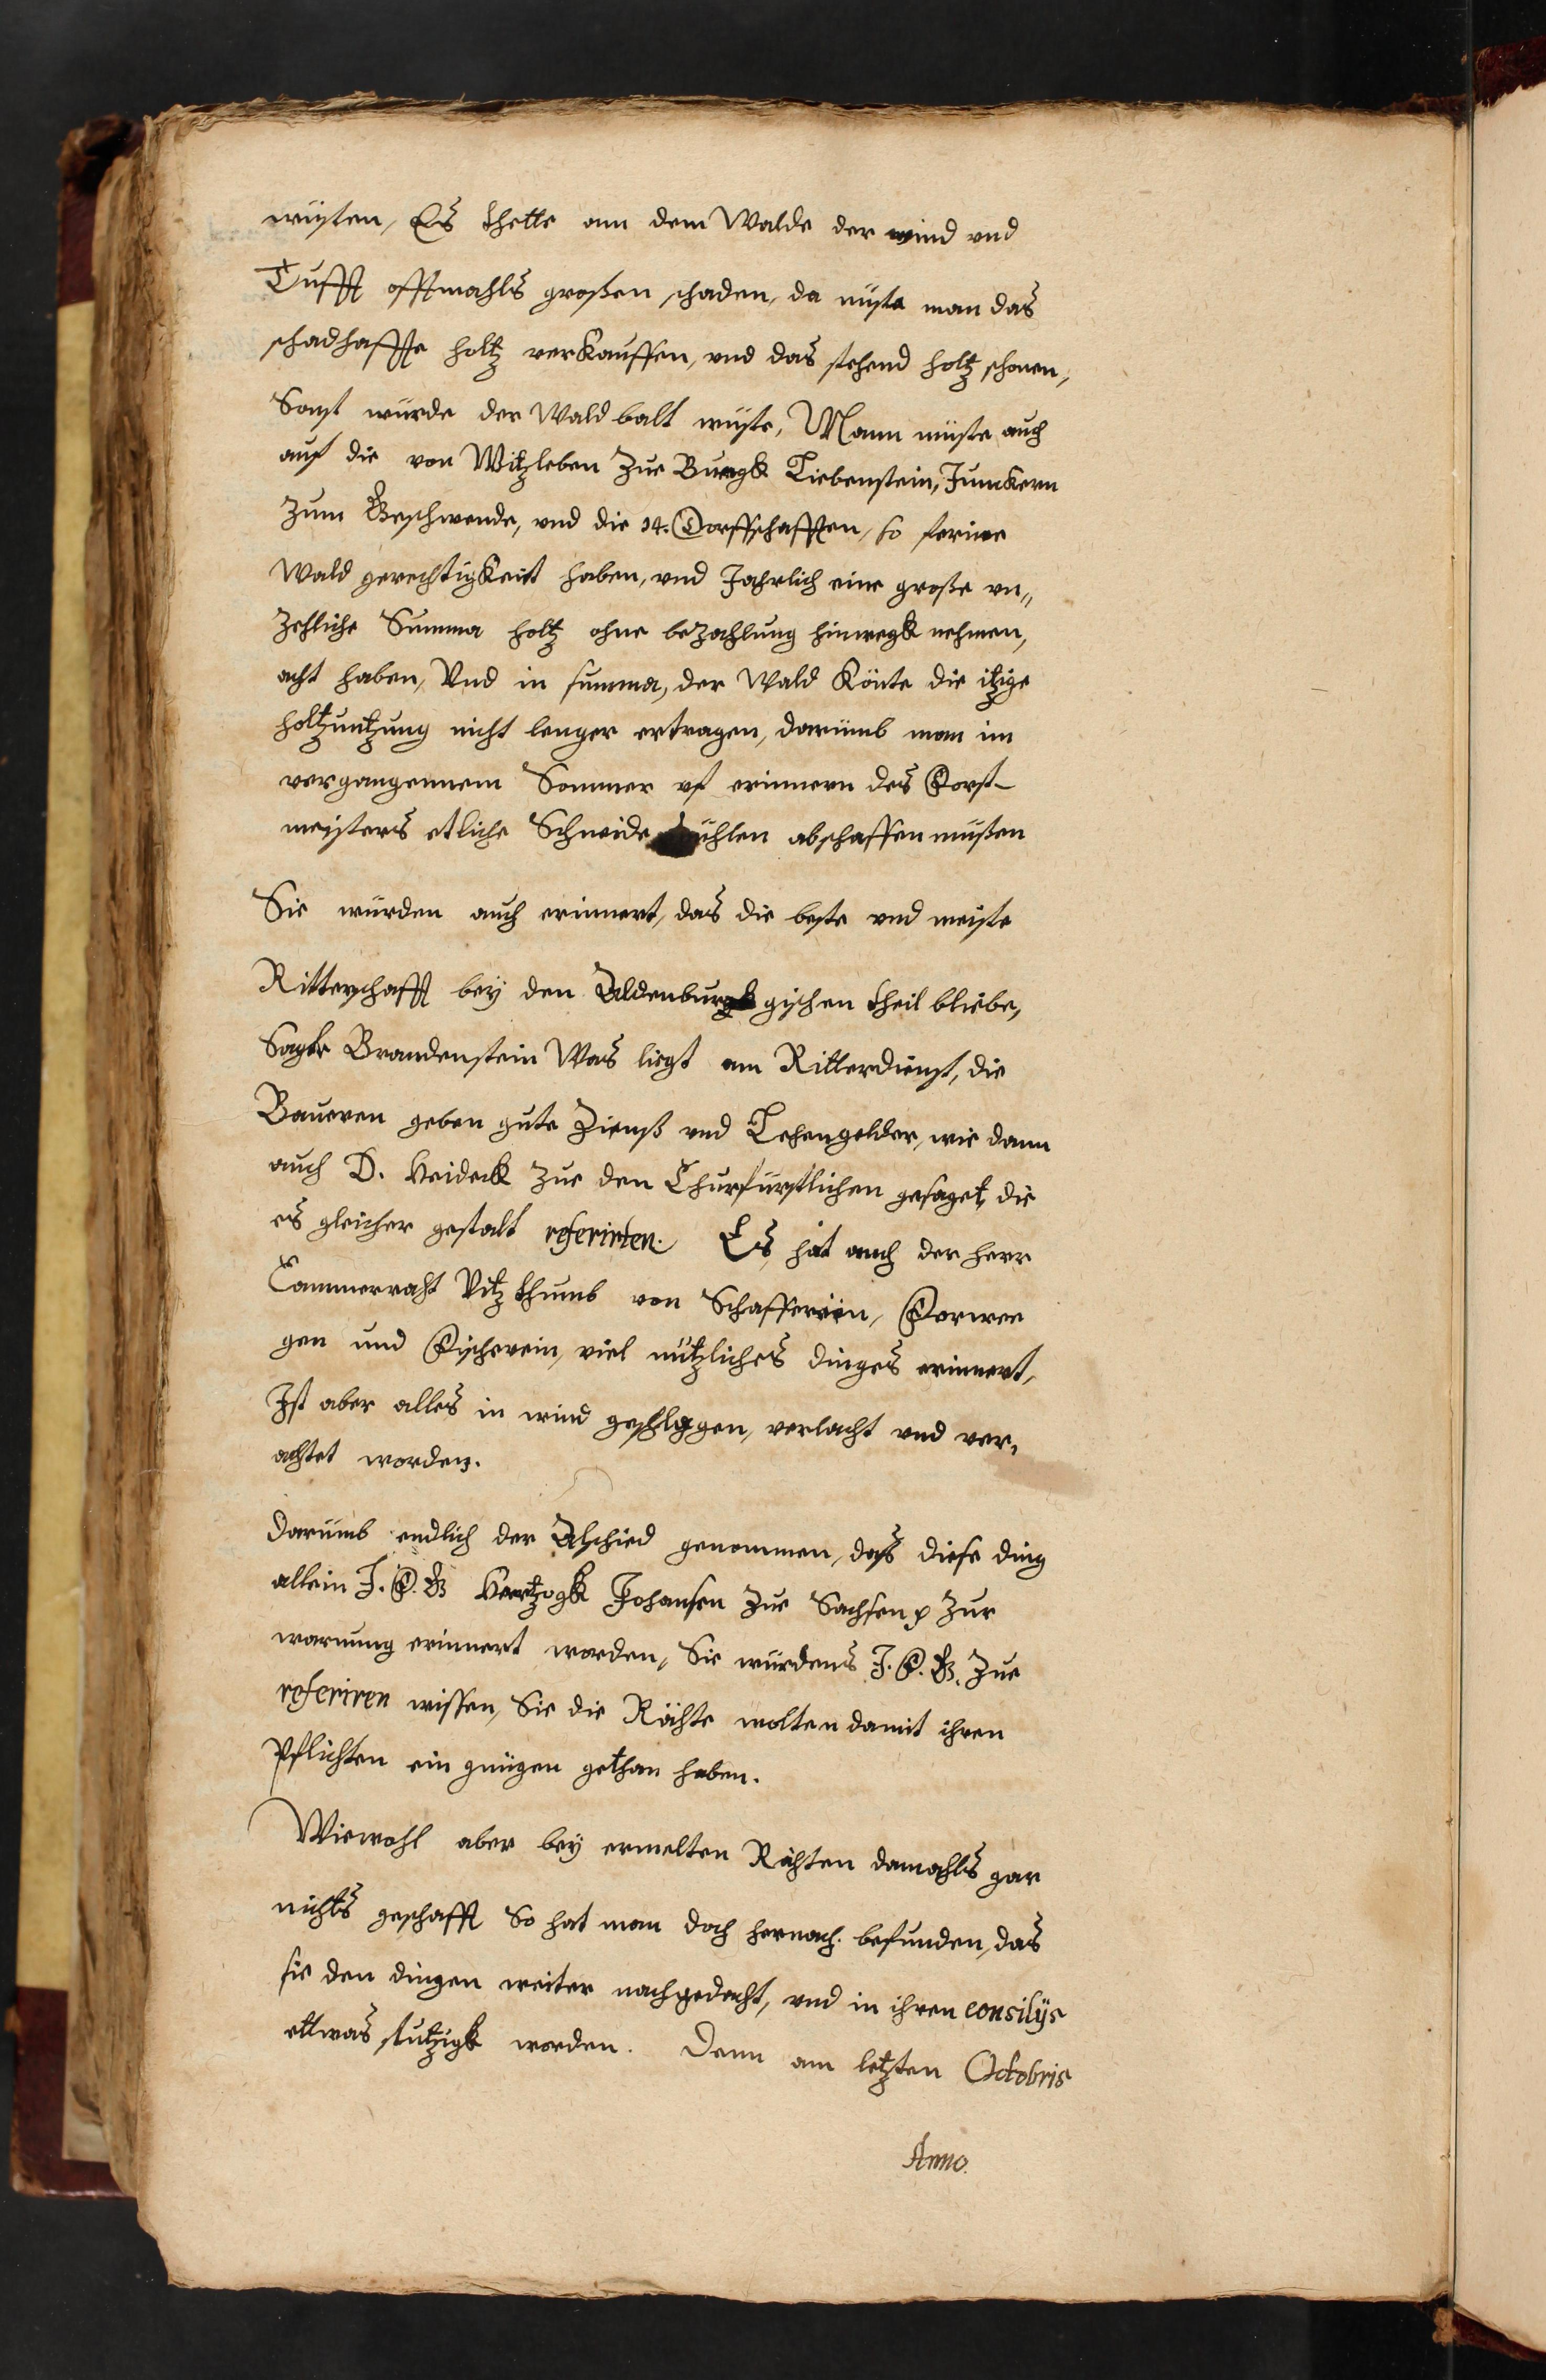 wüsten, Es thette ann dem Walde der wind vnd
Tufft offtmahls großen schaden, da müste man das
schadhaffte holtz verkauffen, vnd das stehend holtz schonen,
Sonst würde der Wald balt wüste, Mann müste auch
auf die von Witzleben Zue Burgk Liebenstein, Junckern
Zum Geschwende, vnd die 14. Dorffschafften, so ferine
Wald gerechtigkeit haben, vnd Jahrlich eine große vn„
Zehliche Summa holtz ohne beZahlung hinwegk nehmen,
acht haben, Vnd in summa, der Wald Könte die itzige
holtznutzung nicht lenger ertragen, darümb man im
vergangennem Sommer vf erinnern des Forst-
meisters etliche Schneide mühlen abschaffen müßen
Sie würden auch erinnert, das die beste vnd meiste
Ritterschafft bey den Aldenburgk gischen theil bliebe,
Sagte Brandenstein Was liegt am Ritterdienst, die
Baueren geben gute Zienß vnd Lehengelder, wie dann
auch D. Heideck Zue den Churfürstlichen gesaget, die
es gleicher gestalt referirten. Es hat auch der herr
Cammerraht Vitzthumb von Schaffereien, Forwer
gen und Fischerein, viel nützliches dinges erinnert,
Ist aber alles in wind geschlagen, verlacht vnd ver„
achtet worden.
Darümb endlich der Abschied genommen, daß diese ding
allein J. F. G Hertzogk Johansen Zue Sachsen p Zur
warnung erinnert worden, Sie würdens J. F. G. Zue
referiren wissen, Sie die Rähte wolten damit ihren
Pflichten ein gnügen gethan haben.
Wiewohl aber bey ermelten Rähten damahls gar
nichts geschafft So hat man doch hernach befunden, das
sie den dingen weiter nachgedacht, vnd in ihren consilijs
ettwas stutzigk worden. Denn am letzten Octobris
Anno